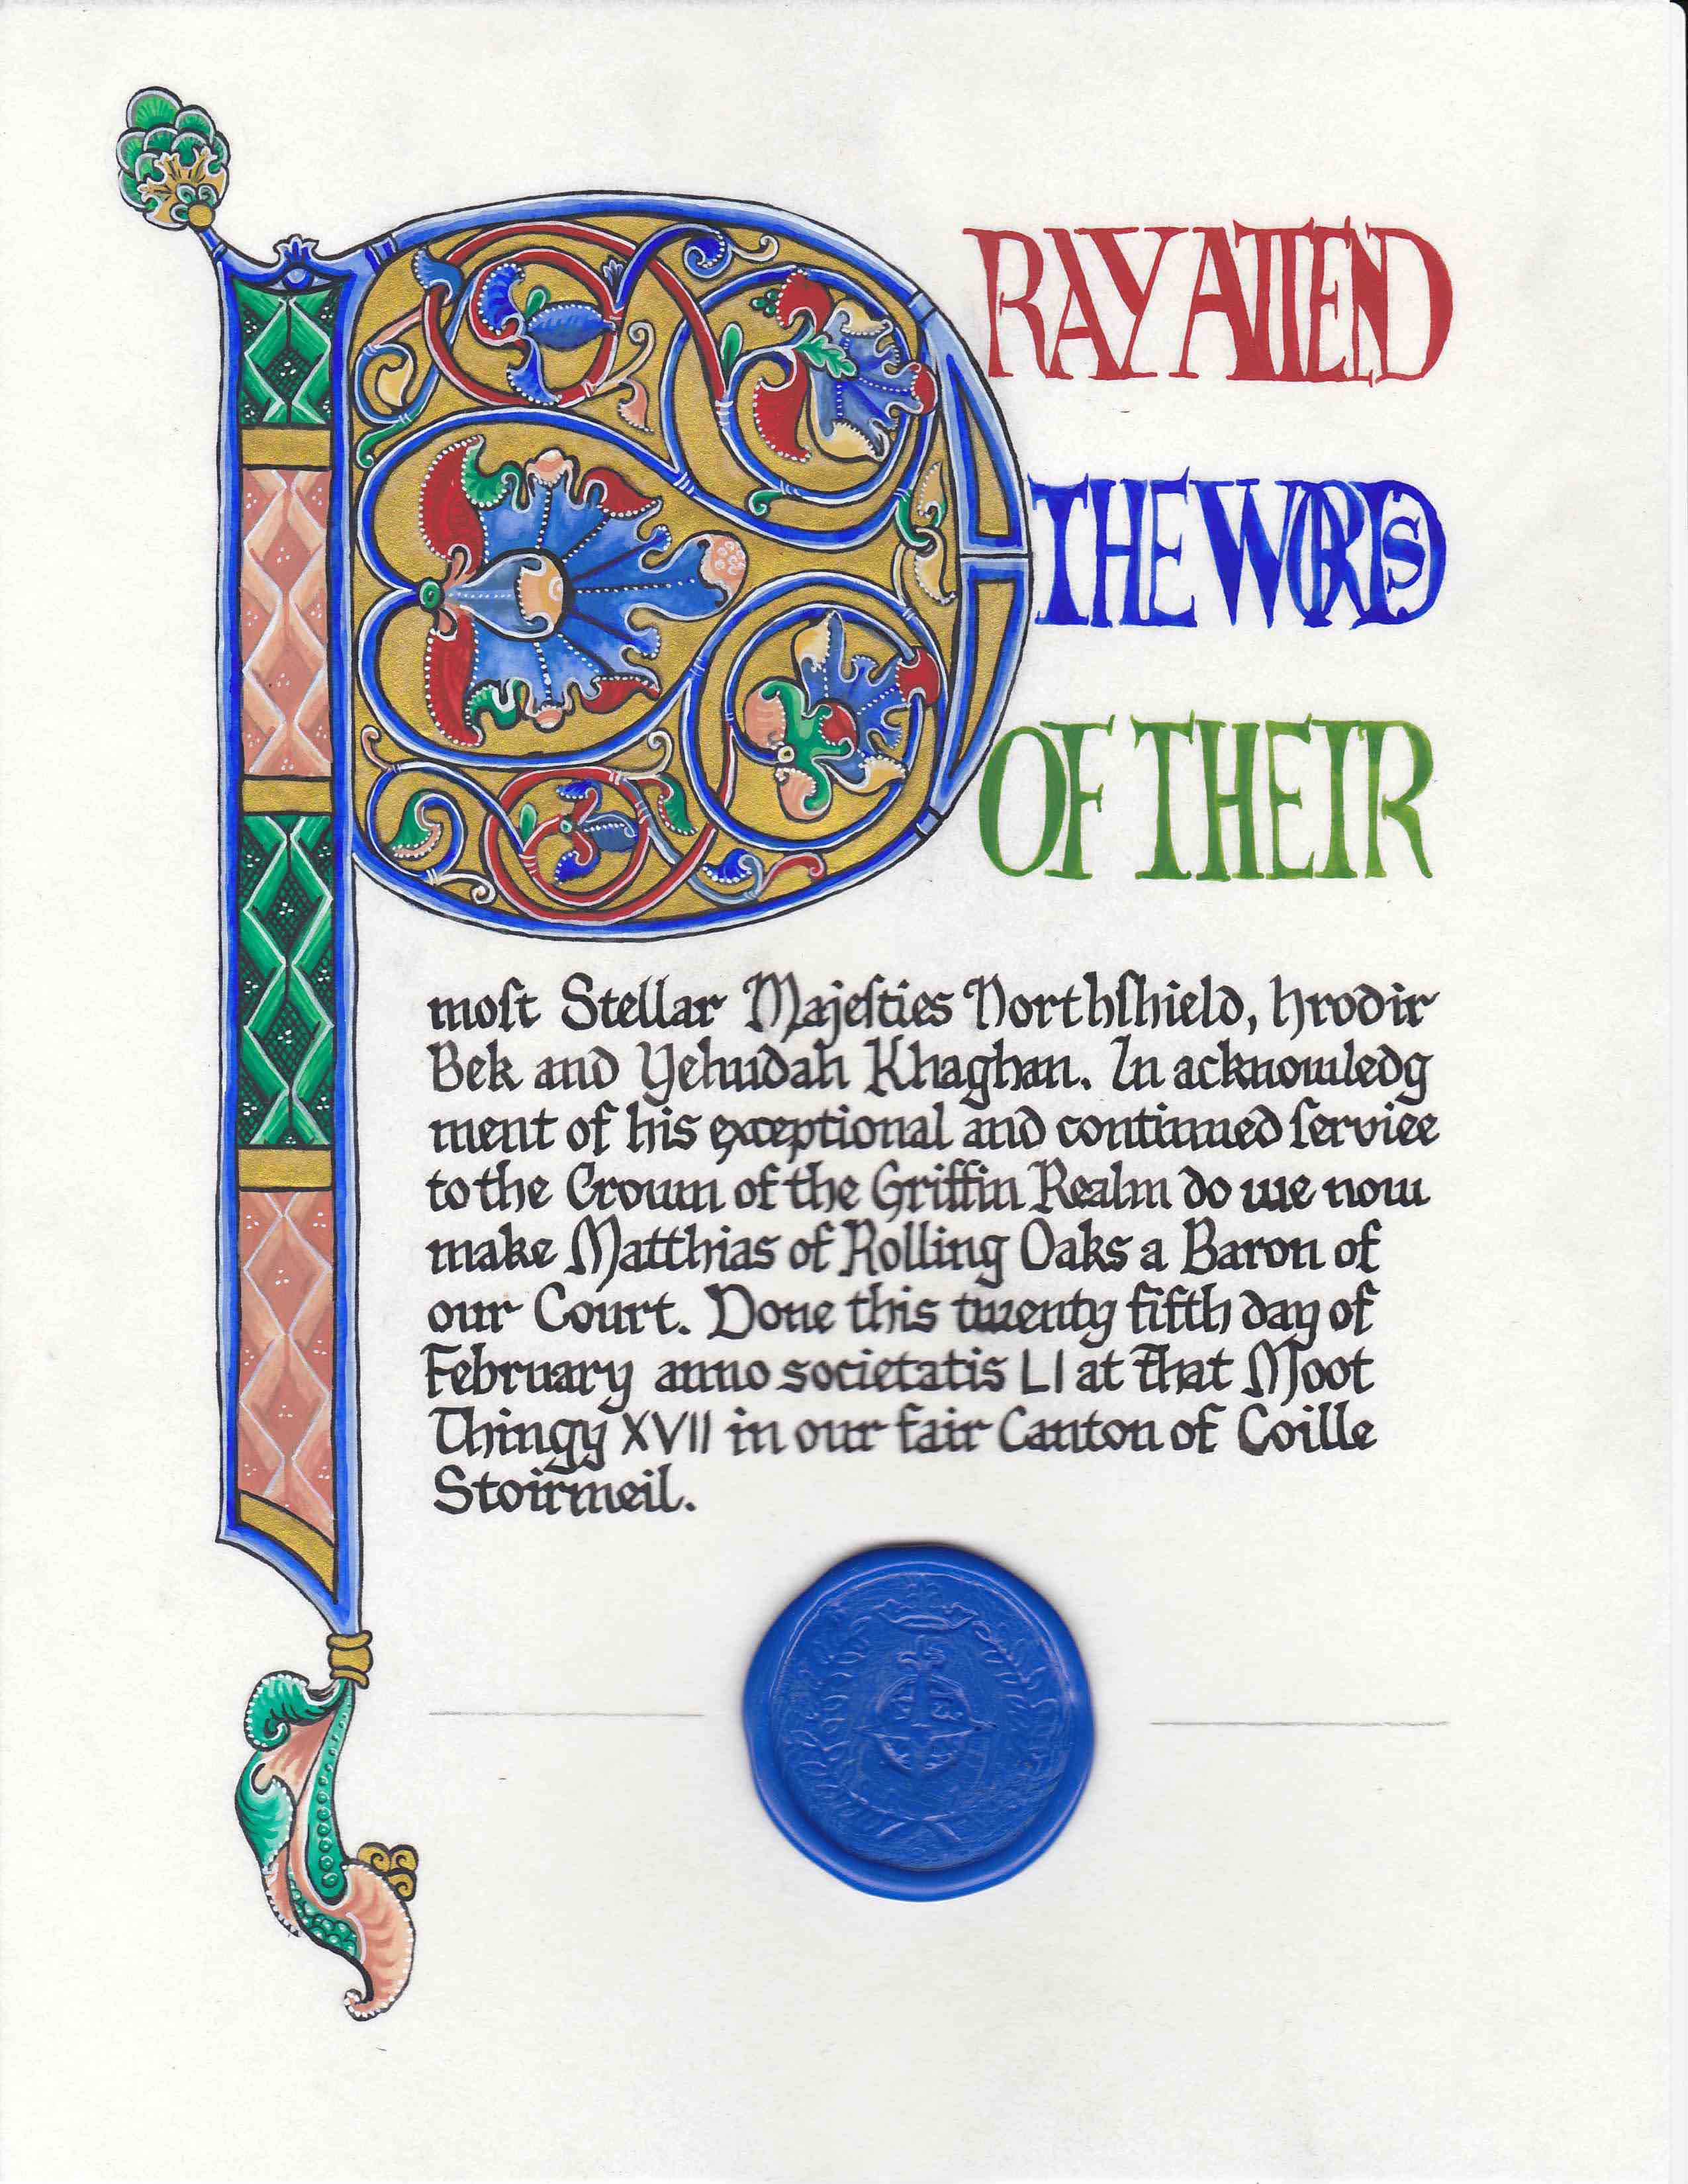 PRAY ATTEND
THE WORDS
OF THEIR
moſt Stellar Majeſties Northſhield, Hrodir
Bek and Yehudah Khaghan. In acknowledg
ment of his exceptional and continued ſervice
to the Crown of the Griffin Realm do we now
make Matthias of Rolling Oaks a Baron of
our Court. Done this twenty fifth day of
February anno societatis LI at that Moot
Thingy XVII in our fair Canton of Coille
Stoirmeil.